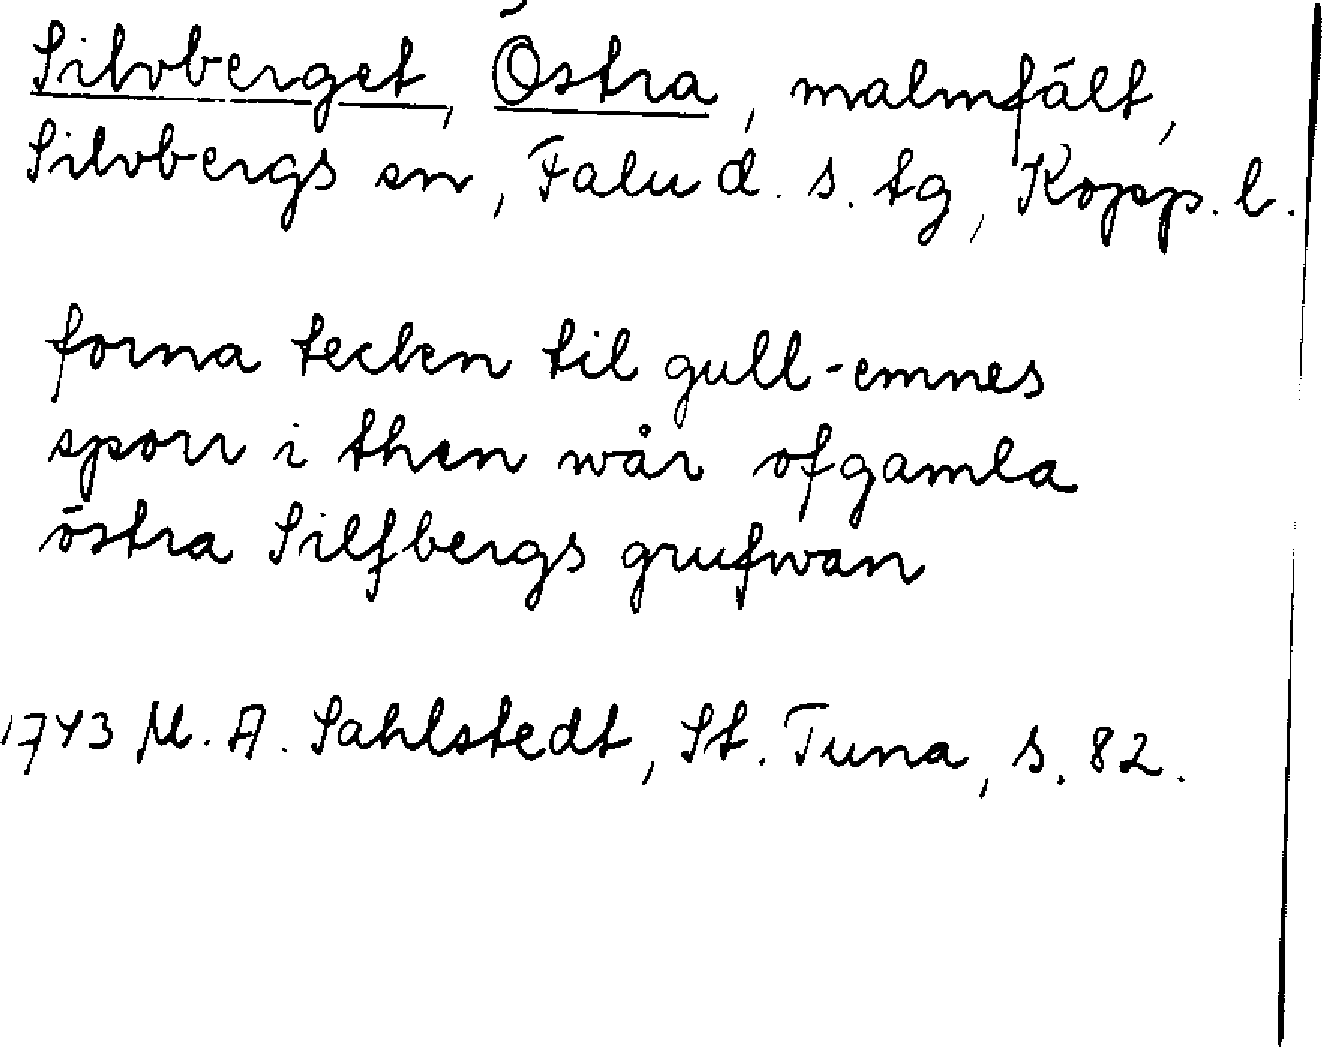 Silvberget, Östra, malmfält,
Silvbergs sn, Falu d. s. tg, Kopp. l.
forna tecken til gull-emnes
sporr i then wår ofgamla
östra Silfbergs grufwan
1743 M. A. Sahlstedt, St. Tuna, s. 82.